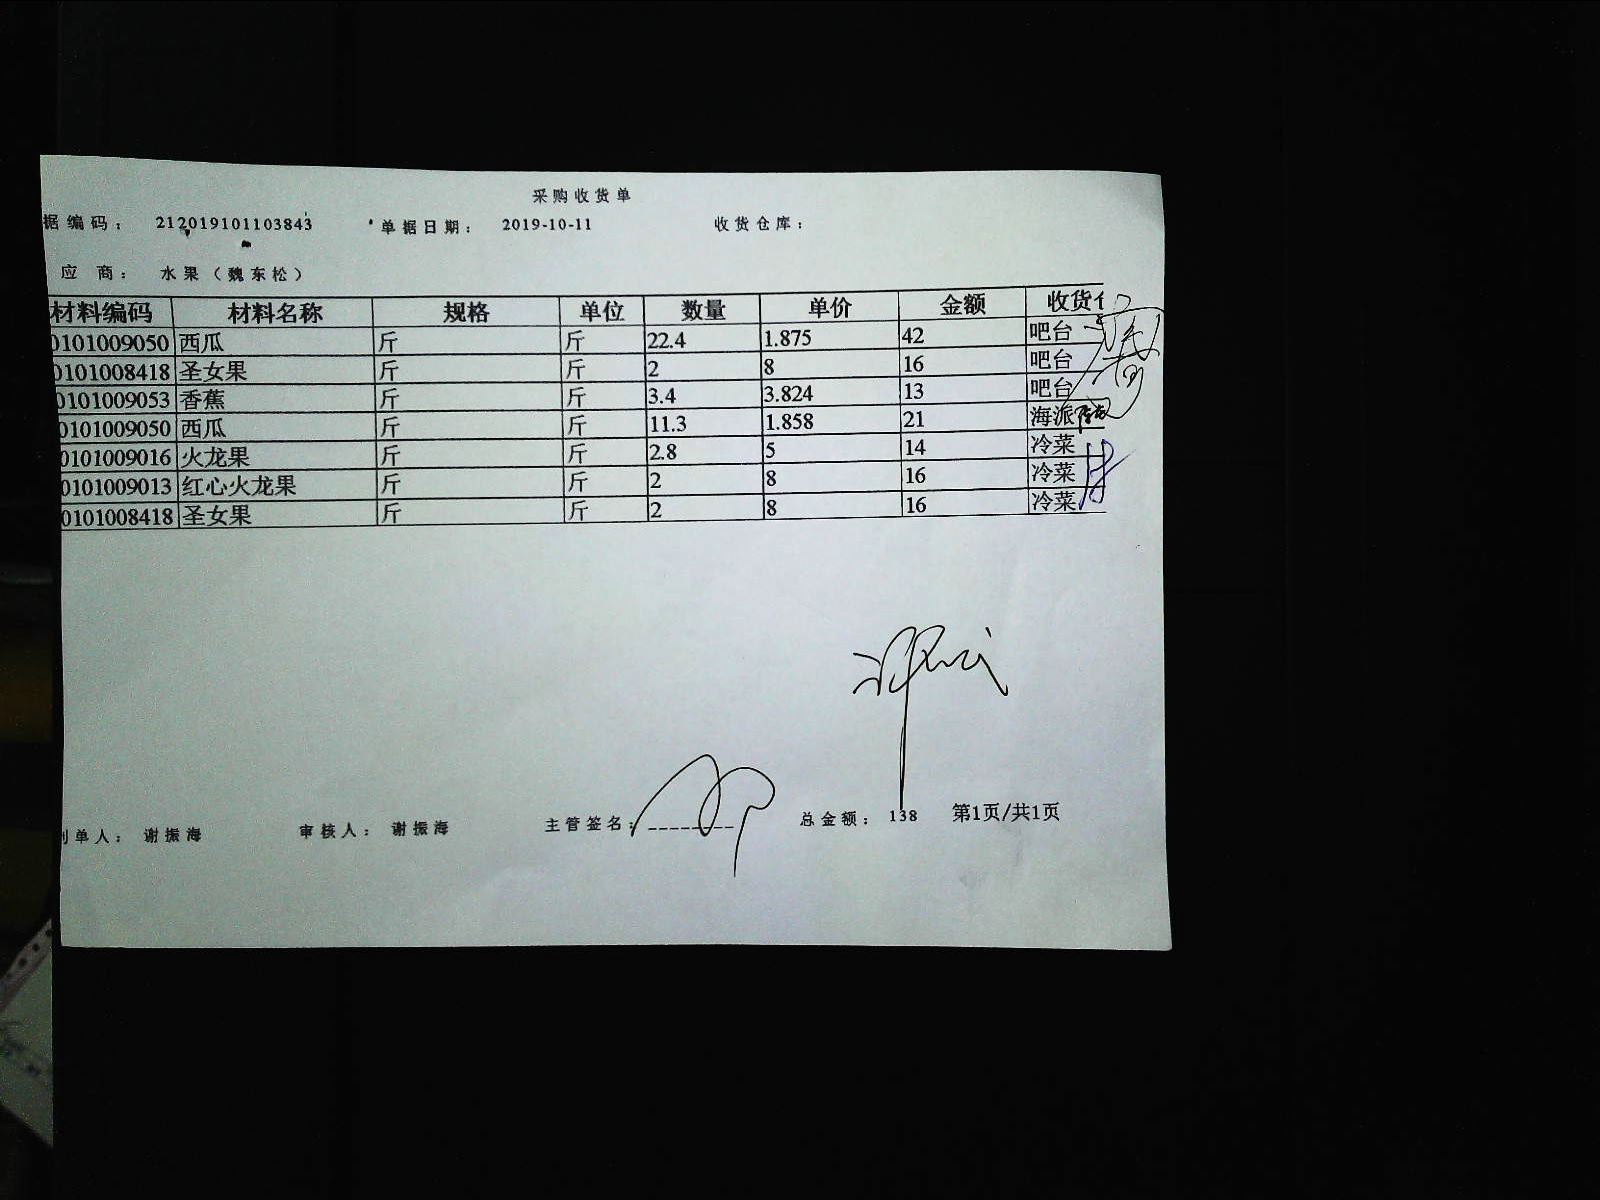 采购收货单
据编码： 212019101103843 单据日期： 2019-10-11 收货仓库：
应 商： 水果（魏东松）
材料编码 材料名称 规格 单位 数量 单价 金额 收货
0101009050 西瓜 斤 斤 22.4 1.875 42 吧台
0101008418 圣女果 斤 斤 2 8 16 吧台
0101009053 香蕉 斤 斤 3.4 3.824 13 吧台
0101009050 西瓜 斤 斤 11.3 1.858 21 海派
0101009016 火龙果 斤 斤 2.8 5 14 冷菜
0101009013 红心火龙果 斤 斤 2 8 16 冷菜
0101008418 圣女果 斤 斤 2 8 16 冷菜
制单人： 谢振海 审核人： 谢振海 主管签名： 总金额： 138 第1页/共1页